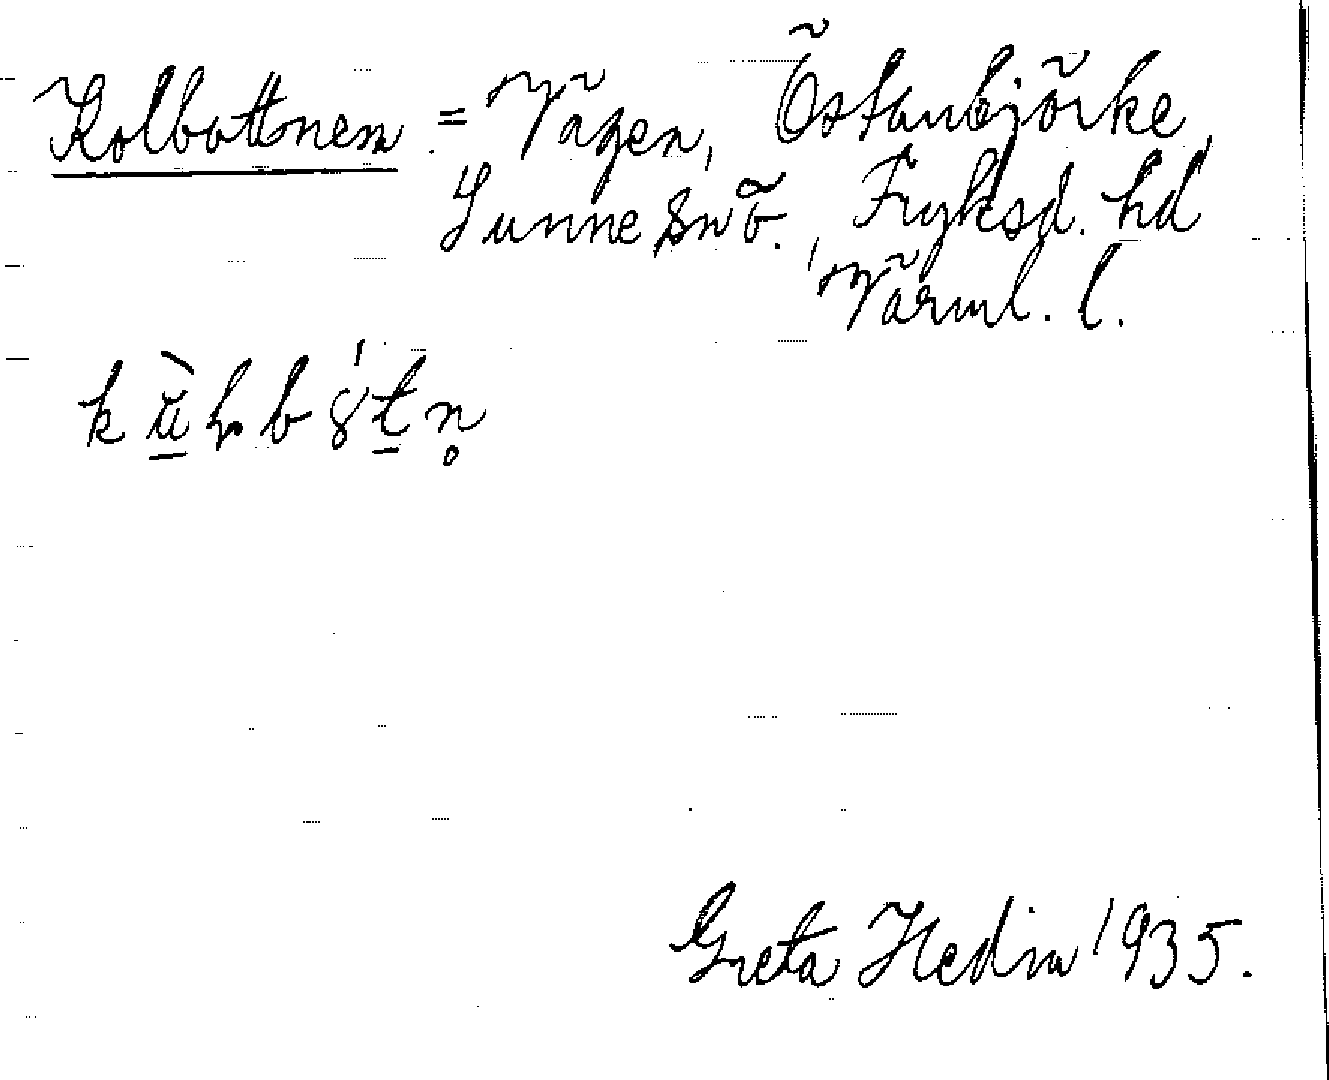 Kolbottnen = Vägen, Östanbjörke,
Sunne snö., Fryksd. hd
Värml. l.
Greta Hedin 1935.